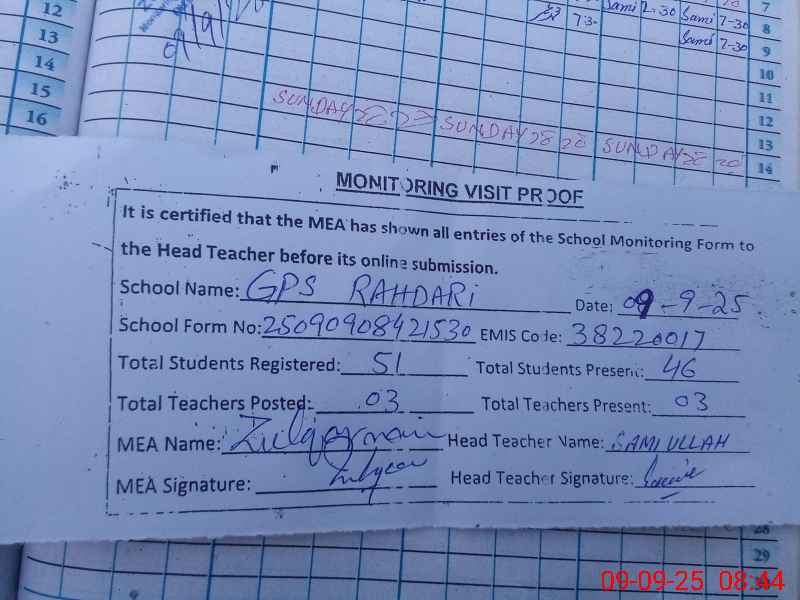 12
13
14
15
16
09/9/
7.30
Sami 2.30 Sami 7-30
Sami 7-30
7
8
9
10
11
12
13
14
SUNDAY SUNDAY SUNDAY
MONITORING VISIT PROOF
It is certified that the MEA has shown all entries of the School Monitoring Form to
the Head Teacher before its online submission.
School Name: GPS RAHDARI Date: 09-9-25
School Form No: 25090908421530 EMIS Code: 38220017
Total Students Registered: 51 Total Students Present: 46
Total Teachers Posted: 03 Total Teachers Present: 03
MEA Name: Head Teacher Name: SAMIULLAH
MEA Signature: Head Teacher Signature:
28
29
09-09-25 08:44